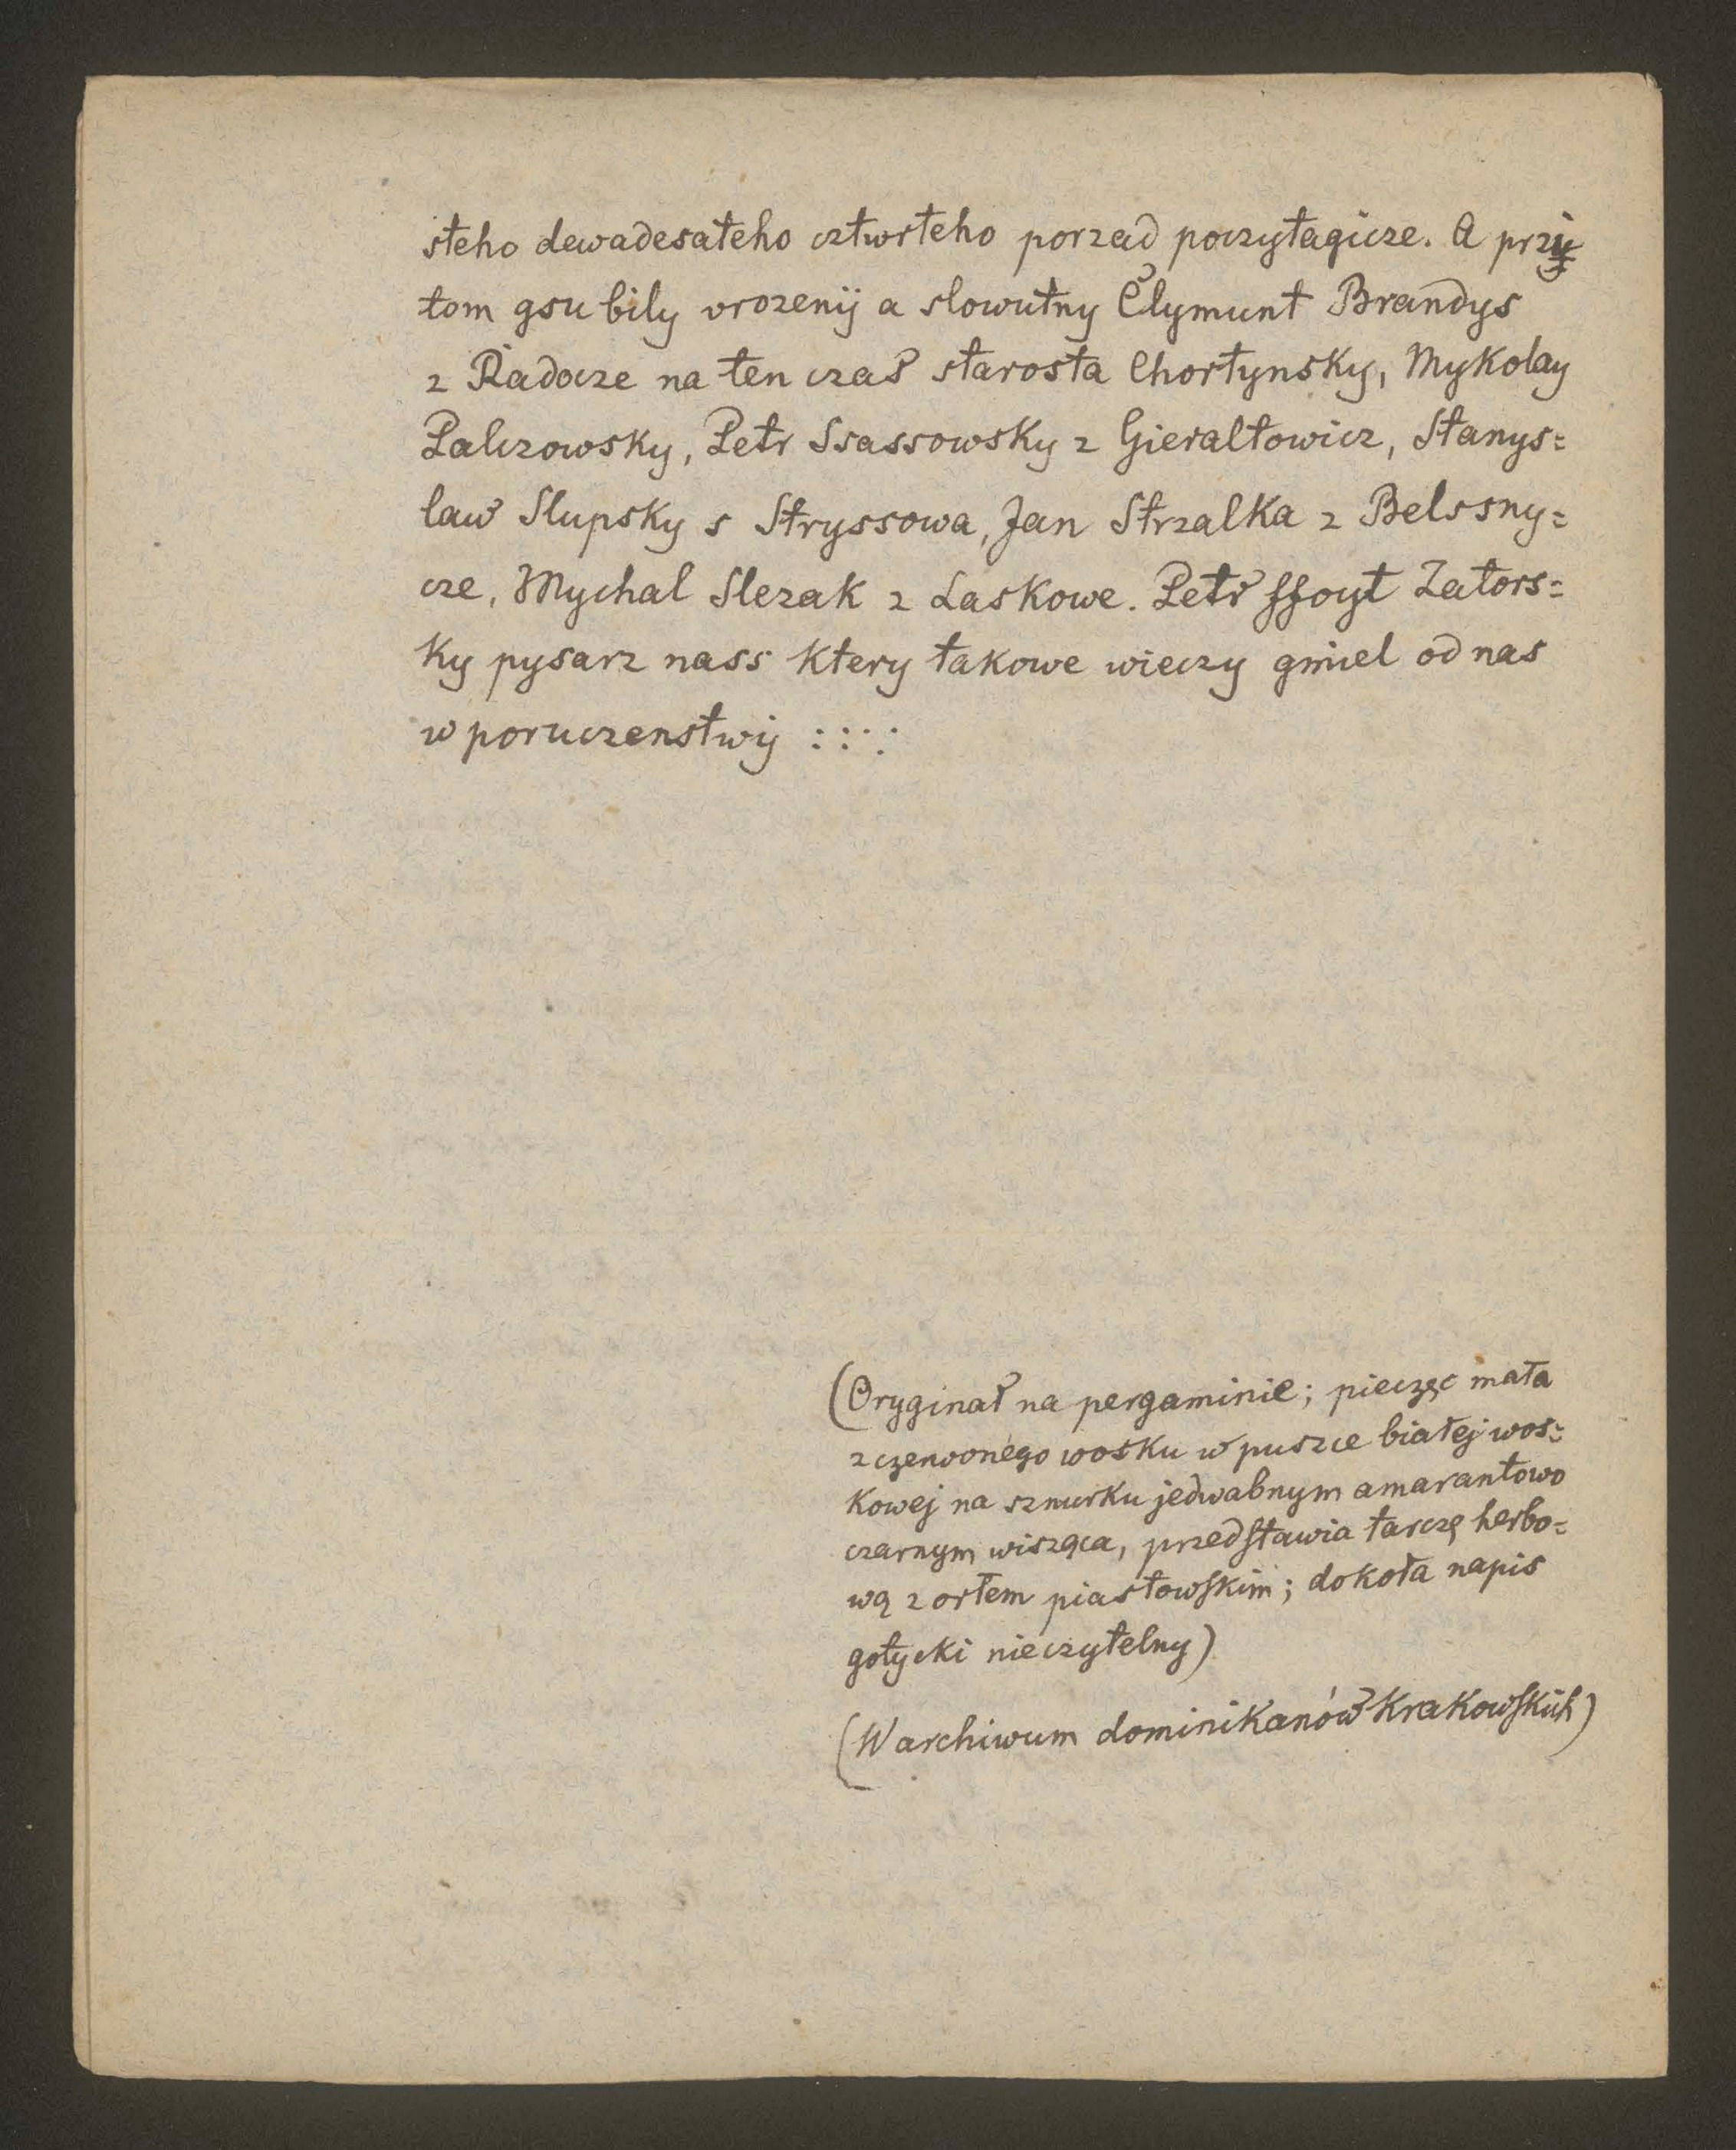 steho dewadesateho cztwrteho porzad poczytagicze. A przy
tom gsu bily vrozenij a slowutny Člymunt Brandys
z Radocze na ten czas starosta Chortynsky, Mykolay
Palczowsky, Petr Ssassowsky z Gieraltowicz, Stanys=
law Slupsky s Stryssowa, Jan Strzalka z Belssny=
cze, Mychal Slezak z Laskowe. Petr ffoyt Zators=
ky pysarz nass ktery takowe wieczy gmiel od nas
w poruczenstwij ::::
(Oryginał na pergaminie; pieczęc mała
z czerwonego wosku w puszce białej wos=
kowej na sznurku jedwabnym amarantowo
czarnym wisząca, przedstawia tarczę herbo=
wą z orłem piastowskim; dokoła napis
gotycki nieczytelny)
(W archiwum dominikanów krakowskich)